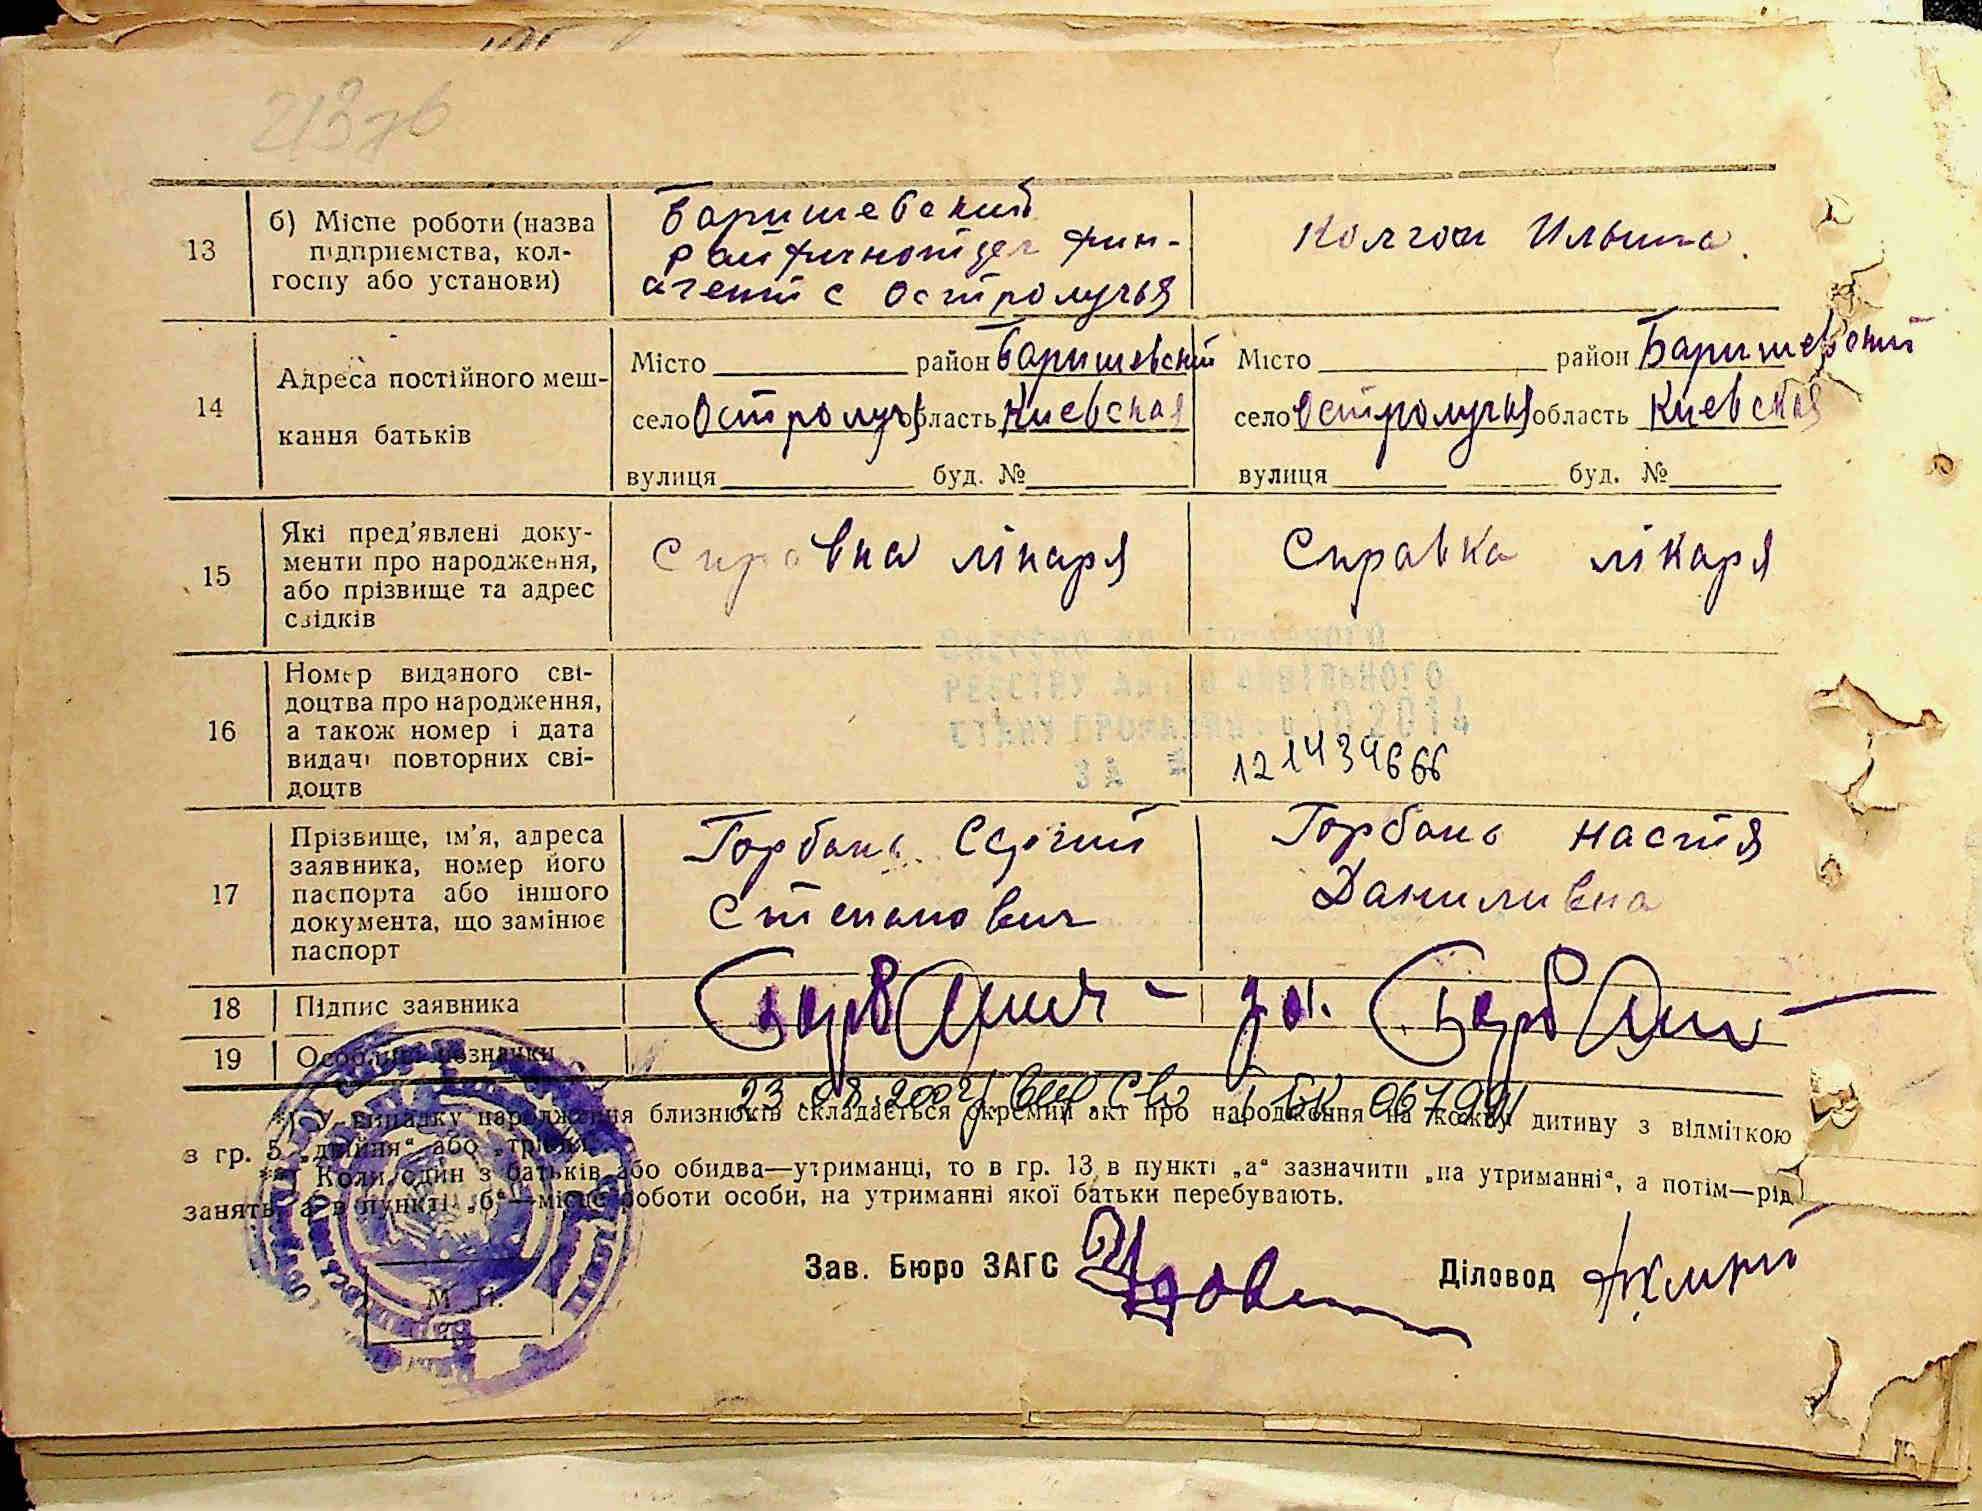 13
б) Місце роботи (назва
підприємства, кол-
госпу або установи)
Баришевский
Райфинотдел фин-
агент с Остролучья
Колгосп Ильича.
14
Адреса постійного меш-
кання батьків
Місто район Баришевский
село Остролучья область Киевская
вулиця буд. №
Місто район Баришевский
село Остролучья область Киевская
вулиця буд. №
15
Які пред'явлені доку-
менти про народження,
або прізвище та адрес
свідків
Справка лікаря
Справка лікаря
16
Номер виданого сві-
доцтва про народження,
а також номер і дата
видачі повторних сві-
доцтв
ВНЕСЕНО ДО
РЕЄСТРУ АКТІВ ЦИВІЛЬНОГО
СТАНУ ГРОМАДЯН 2014
ЗА №
17
Прізвище, ім'я, адреса
заявника, номер його
паспорта або іншого
документа, що замінює
паспорт
Горбань Сергий
Степанович
Горбань Настя
Даниливна
18
Підпис заявника
за.
19
Особливі позначки
*) У випадку народження близнюків складається окремий акт про народження на кожну дитину з відміткою
в гр. 5 „двійня“ або „трійня“.
** Коли один з батьків або обидва—утриманці, то в гр. 13 в пункті „а“ зазначити „на утриманні“, а потім—рід
занять, а в пункті „б“—місце роботи особи, на утриманні якої батьки перебувають.
Зав. Бюро ЗАГС
Діловод
М. П.